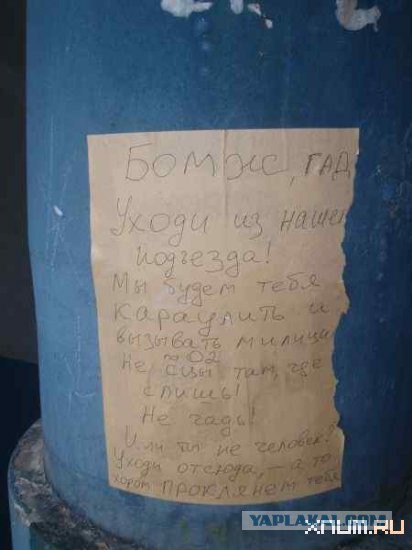 Бомж, гад
Уходи из нашег
подъезда!
Мы будем тебя
караулить и
вызывать милицию
по 02
Не сцы там, где
спишь!
Не гадь!
Или ты не человек?
Уходи отсюда, – а то
хором проклянем тебя
YAPLAKAL.COM
XNUM.RU